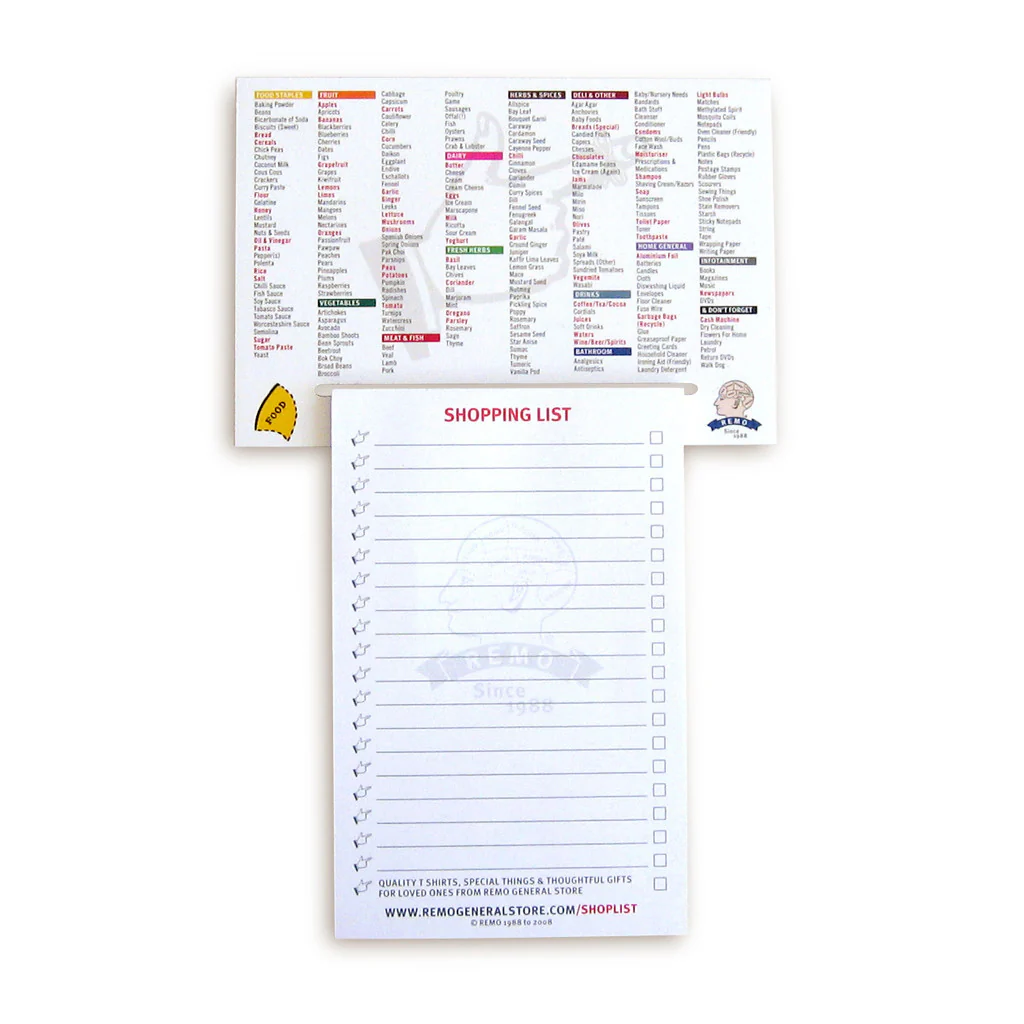 FOOD STAPLES
Baking Powder
Beans
Bicarbonate of Soda
Biscuits (Sweet)
Bread
Cereals
Chick Peas
Chutney
Coconut Milk
Cous Cous
Crackers
Curry Paste
Flour
Gelatine
Honey
Lentils
Mustard
Nuts & Seeds
Oil & Vinegar
Pasta
Pepper(s)
Polenta
Rice
Salt
Chilli Sauce
Fish Sauce
Soy Sauce
Tabasco Sauce
Tomato Sauce
Worcesteshire Sauce
Semolina
Sugar
Tomato Paste
Yeast
FRUIT
Apples
Apricots
Bananas
Blackberries
Blueberries
Cherries
Dates
Figs
Grapefruit
Grapes
Kiwifruit
Lemons
Limes
Mandarins
Mangoes
Melons
Nectarines
Oranges
Passionfruit
Pawpaw
Peaches
Pears
Pineapples
Plums
Raspberries
Strawberries
VEGETABLES
Artichokes
Asparagus
Avocado
Bamboo Shoots
Bean Sprouts
Beetroot
Bok Choy
Broad Beans
Broccoli
Cabbage
Capsicum
Carrots
Cauliflower
Celery
Chilli
Corn
Cucumbers
Daikon
Eggplant
Endive
Eschallots
Fennel
Garlic
Ginger
Leeks
Lettuce
Mushrooms
Onions
Spanish Onions
Spring Onions
Pak Choi
Parsnips
Peas
Potatoes
Pumpkin
Radishes
Spinach
Tomato
Turnips
Watercress
Zucchini
MEAT & FISH
Beef
Veal
Lamb
Pork
Poultry
Game
Sausages
Offal(!)
Fish
Oysters
Prawns
Crab & Lobster
DAIRY
Butter
Cheese
Cream
Cream Cheese
Eggs
Ice Cream
Marscapone
Milk
Ricotta
Sour Cream
Yoghurt
FRESH HERBS
Basil
Bay Leaves
Chives
Coriander
Dill
Marjoram
Mint
Oregano
Parsley
Rosemary
Sage
Thyme
HERBS & SPICES
Allspice
Bay Leaf
Bouquet Garni
Caraway
Cardamon
Caraway Seed
Cayenne Pepper
Chilli
Cinnamon
Cloves
Coriander
Cumin
Curry Spices
Dill
Fennel Seed
Fenugreek
Galangal
Garam Masala
Garlic
Ground Ginger
Juniper
Kaffir Lima Leaves
Lemon Grass
Mace
Mustard Seed
Nutmeg
Paprika
Pickling Spice
Poppy
Rosemary
Saffron
Sesame Seed
Star Anise
Sumac
Thyme
Tumeric
Vanilla Pod
DELI & OTHER
Agar Agar
Anchovies
Baby Foods
Breads (Special)
Candied Fruits
Capers
Cheeses
Chocolates
Edamame Beans
Ice Cream (Again)
Jams
Marmalade
Milo
Mirin
Miso
Nori
Olives
Pastry
Paté
Salami
Soya Milk
Spreads (Other)
Sundried Tomatoes
Vegemite
Wasabi
DRINKS
Coffee/Tea/Cocoa
Cordials
Juices
Soft Drinks
Waters
Wine/Beer/Spirits
BATHROOM
Analgesics
Antiseptics
Baby/Nursery Needs
Bandaids
Bath Stuff
Cleanser
Conditioner
Condoms
Cotton Wool/Buds
Face Wash
Moisturiser
Prescriptions &
Medications
Shampoo
Shaving Cream/Razors
Soap
Sunscreen
Tampons
Tissues
Toilet Paper
Toner
Toothpaste
HOME GENERAL
Aluminium Foil
Batteries
Candles
Cloth
Diswashing Liquid
Envelopes
Floor Cleaner
Fuse Wire
Garbage Bags
(Recycle)
Glue
Greaseproof Paper
Greeting Cards
Household Cleaner
Ironing Aid (Friendly)
Laundry Detergent
Light Bulbs
Matches
Methylated Spirit
Mosquito Coils
Notepads
Oven Cleaner (Friendly)
Pencils
Pens
Plastic Bags (Recycle)
Notes
Postage Stamps
Rubber Gloves
Scourers
Sewing Things
Shoe Polish
Stain Removers
Starch
Sticky Notepads
String
Tape
Wrapping Paper
Writing Paper
INFOTAINMENT
Books
Magazines
Music
Newspapers
DVDs
& DON'T FORGET
Cash Machine
Dry Cleaning
Flowers For Home
Laundry
Petrol
Return DVDs
Walk Dog
FOOD
REMO
Since
1988
SHOPPING LIST
REMO
Since
1988
QUALITY T SHIRTS, SPECIAL THINGS & THOUGHTFUL GIFTS
FOR LOVED ONES FROM REMO GENERAL STORE
WWW.REMOGENERALSTORE.COM/SHOPLIST
© REMO 1988 to 2008